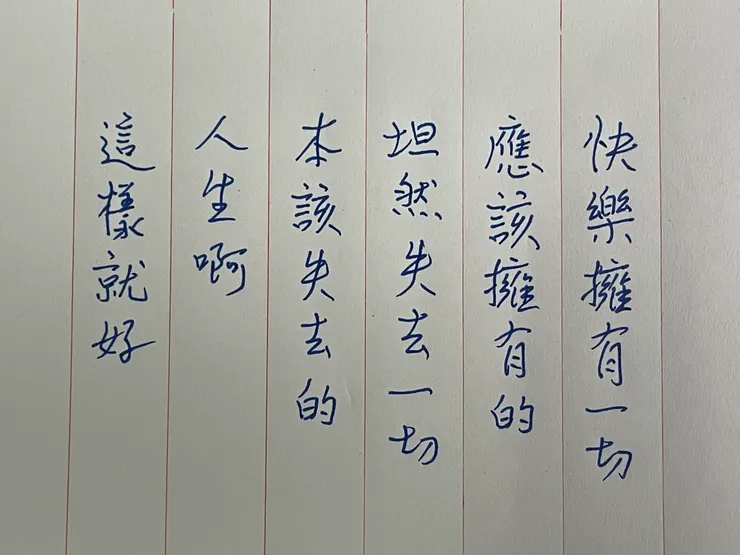 快樂擁有一切
應該擁有的
坦然失去一切
本該失去的
人生啊
這樣就好